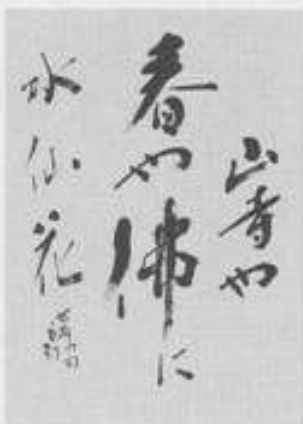 山寺や
春や佛に
水仙花